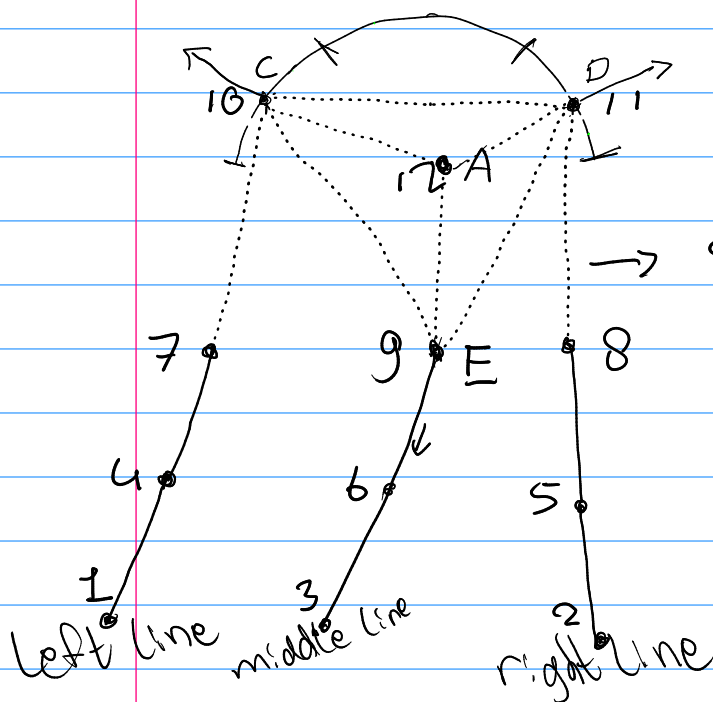 C D
10 11
12 A
7 9 E 8
4 6 5
1 3 2
left line middle line right line